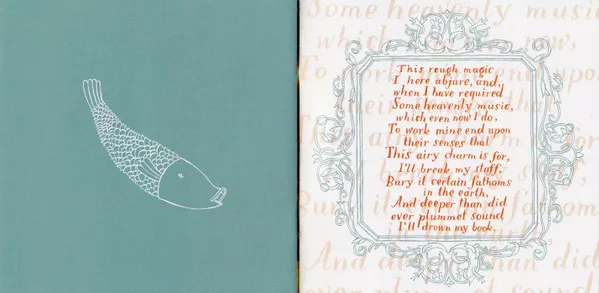 Some heavenly music
which now,
To end upon
This rough magic
I here abjure, and,
when I have required
Some heavenly music,
which even now I do,
To work mine end upon
their senses that
This airy charm is for,
I'll break my staff,
Bury it certain fathoms
in the earth,
And deeper than did
ever plummet sound
I'll drown my book.
And than did